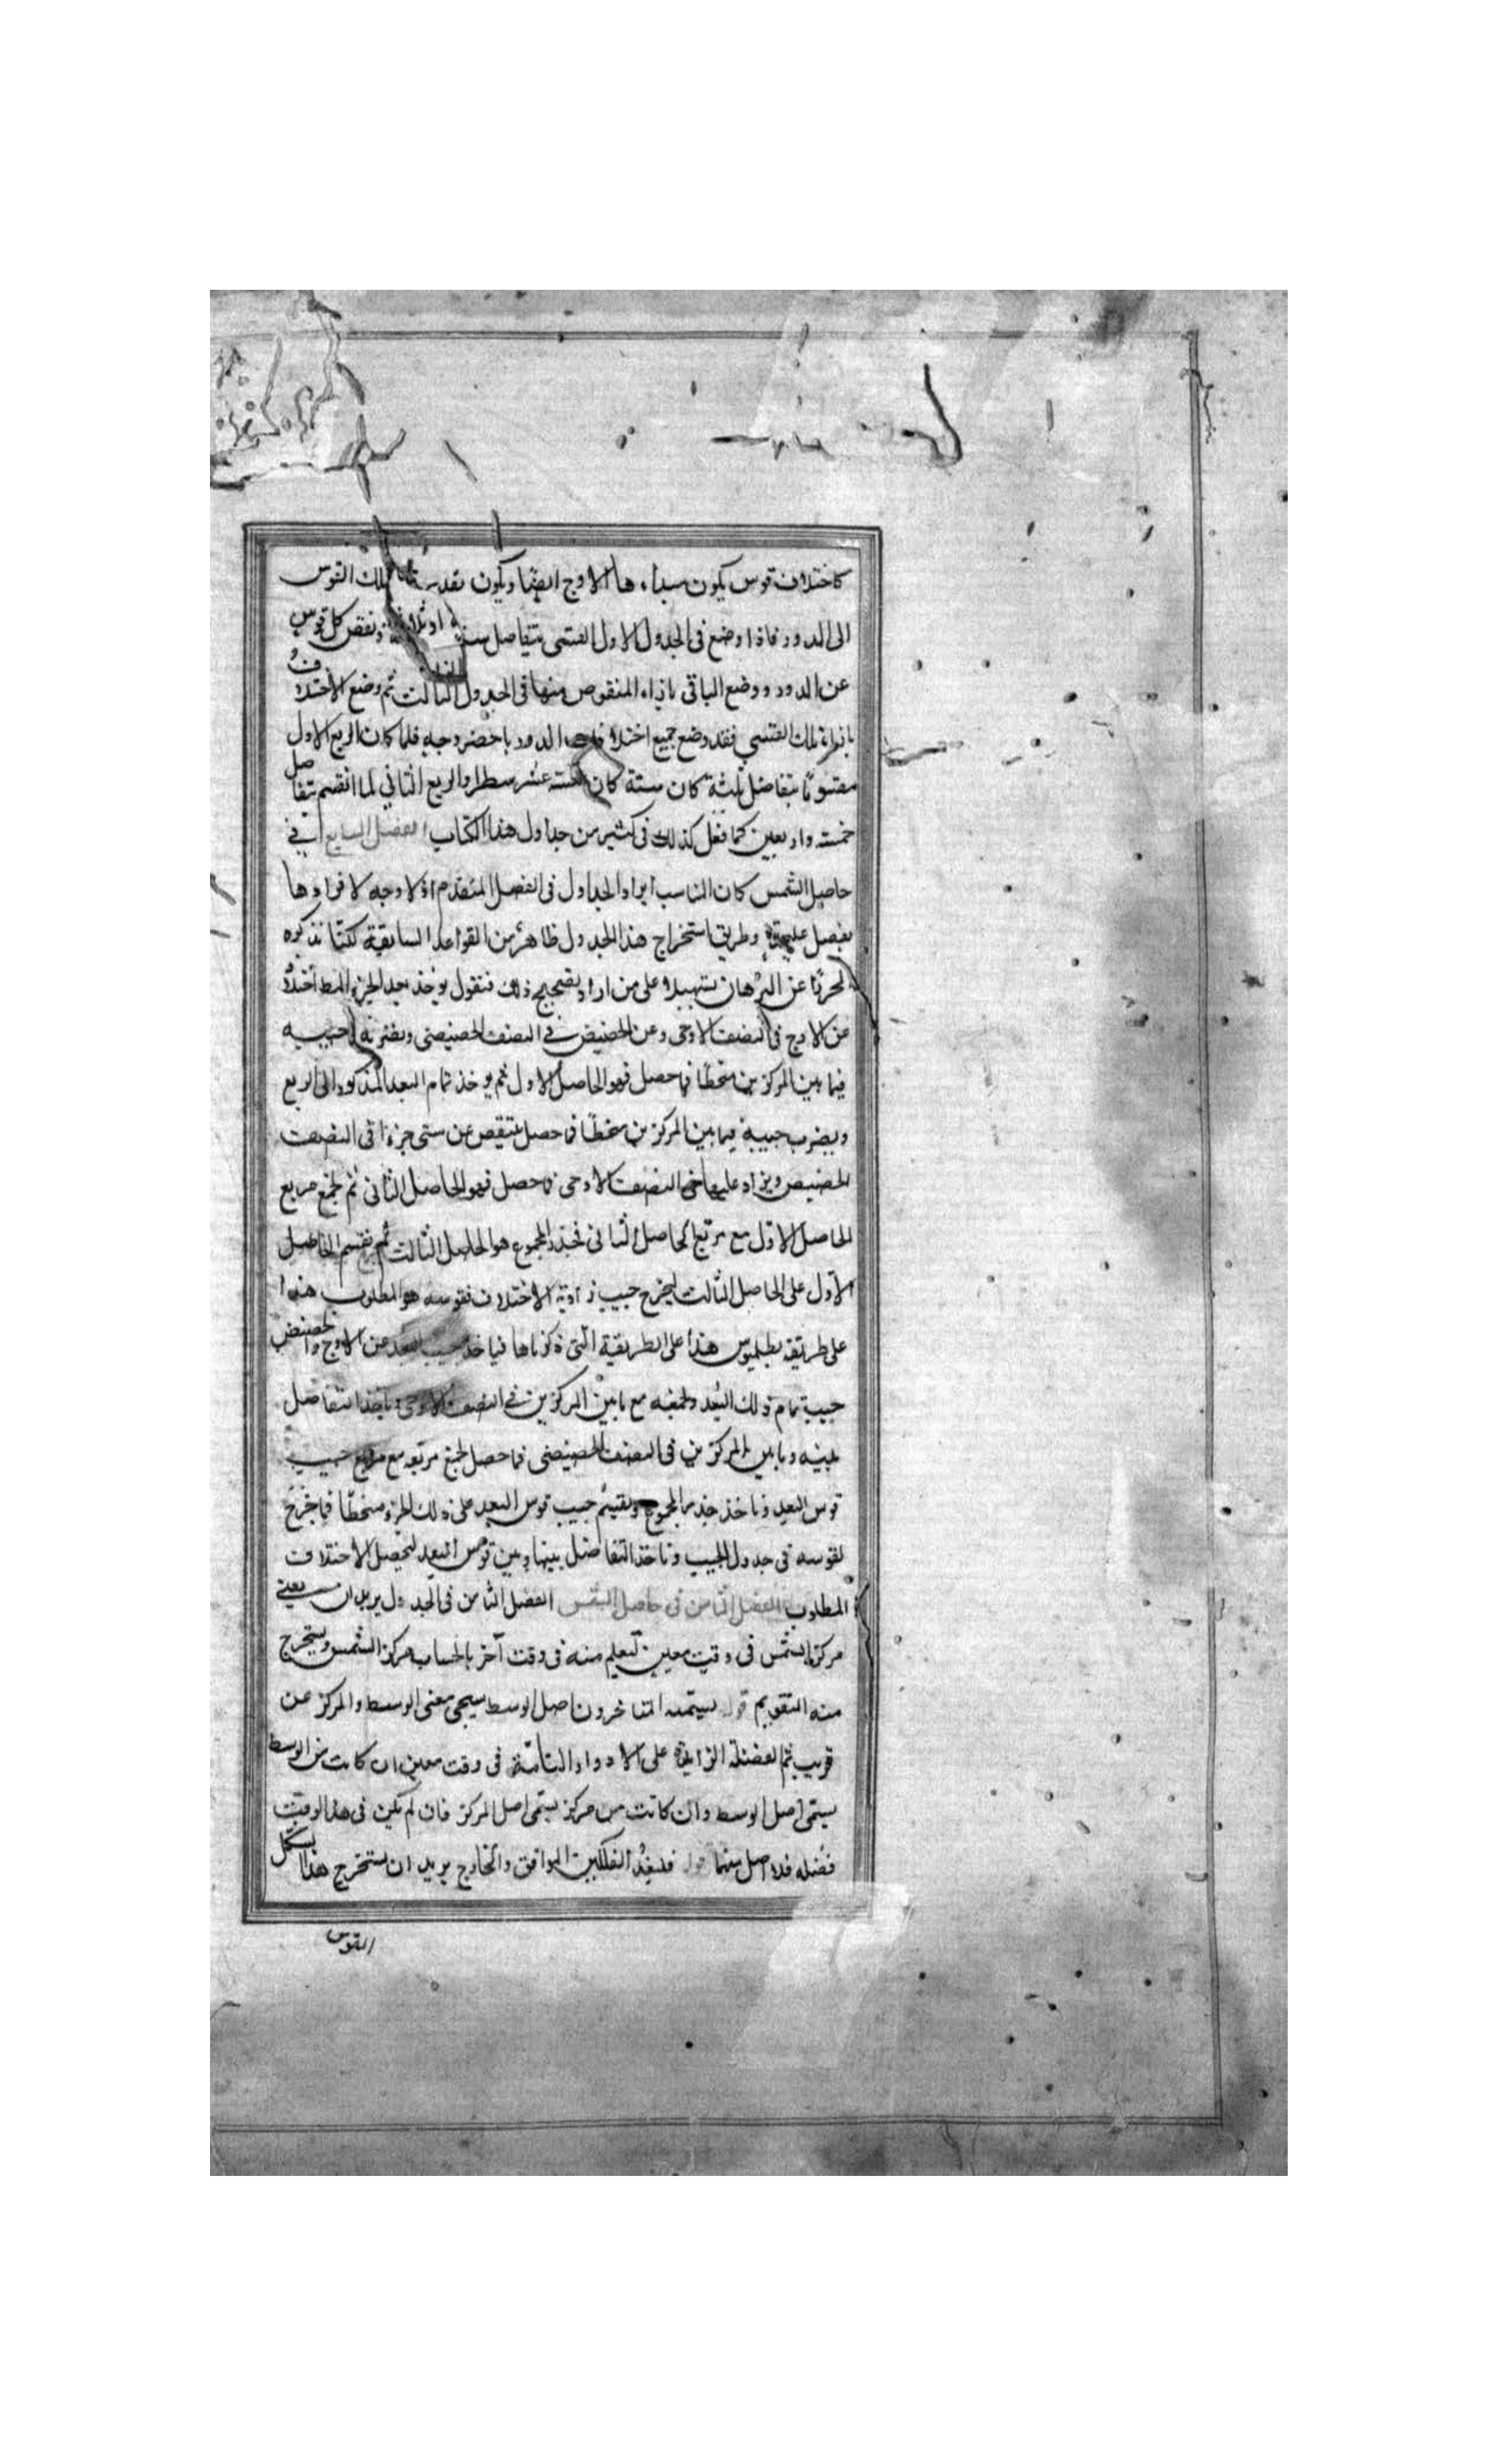 كاختلاف قوس يكون مبداءها الاوج ايضا ويكون بقدر تلك القوس
الى الدور فاذا وضع فى الجدول الاول القسى بتفاضل ستة او ثلاثة ونقص كل قوس
عن الدور ووضع الباقى باذاء المنقوص منها فى الجدول الثالث ثم وضع الاختلاف
بازاء تلك القسي فقد وضع جميع اختلافات الدور باخضر وجه فلما كان الربع الاول
مقسوما بتفاضل ثلثة كان ستة كان خمسة عشر سطرا والربع الثاني لما انقسم بتفاضل
خمسة واربعين كما فعل كذلك فى كثير من جداول هذا الكتاب الفصل السابع في
حاصل الشمس كان المناسب ايراد الجداول فى الفصل المتقدم اذ لا وجه لافرادها
بفصل عليحدة وطريق استخراج هذا الجدول ظاهر من القواعد السابقة لكنا نذكره
مجردا عن البرهان تسهيلا على من اراد تصحيح ذلك فنقول يوخذ بعد الجزء المط اختلافه
عن الاوج فى النصف الاوجى وعن الحضيض فى النصف الحضيضى ويضرب جيبه
فيما بين المركزين منحطا فما حصل فهو الحاصل الاول ثم يوخذ تمام البعد المذكور الى الربع
ويضرب جيبه فيما بين المركزين منحطا فما حصل ينتقص من ستين جزءا فى النصف
الحضيض ويزاد عليها فى النصف الاوجى فما حصل فهو الحاصل الثانى ثم نجمع مربع
الحاصل الاول مع مربع الحاصل الثانى فجذر المجموع هو الحاصل الثالث ثم نقسم الحاصل
الاول على الحاصل الثالث ليخرج جيب زاوية الاختلاف فقوسه هو المطلوب هذا
على طريقة بطلميوس هذا على الطريقة التى ذكرناها فياخذ جيب البعد عن الاوج والحضيض
جيب تمام ذلك البعد ونجمعه مع ما بين المركزين فى النصف الاوجى وناخذ التفاضل
بينه وما بين المركزين فى النصف الحضيضى فما حصل نجمع مربعه مع مربع جيب
قوس البعد وناخذ جذر المجموع ونقسم جيب قوس البعد على ذلك الجزء منحطا فما خرج
نقوسه فى جدول الجيب وناخذ التفاضل بينها وبين قوس البعد ليحصل الاختلاف
المطلوب الفصل الثامن فى حاصل الشمس الفصل الثامن فى الجدول يريد ان يعين
مركز الشمس فى وقت معين ليعلم منه فى وقت آخر بالحساب مركز الشمس ويستخرج
منه التقويم قوله يسميه المتاخرون اصل الوسط سيجى معنى الوسط والمركز عن
قريب ثم الفضلة الزايدة على الادوار التامة فى وقت معين ان كانت من الوسط
يسمى اصل الوسط وان كانت من مركز يسمى اصل المركز فان لم تكن فى هذا الوقت
فضله فلا اصل بينهما قوله فليفد الفلكين الموافق والخارج يريد ان يستخرج هذا بشكل
القوس